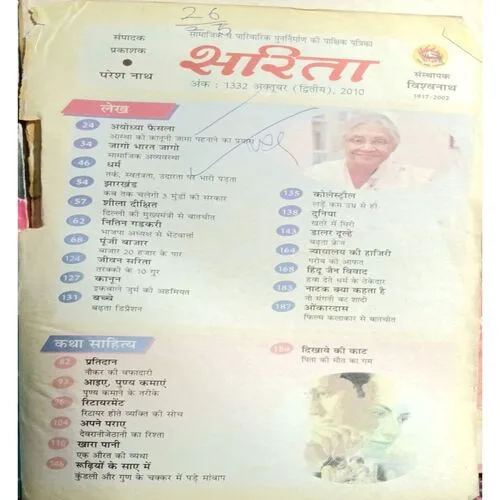 26
सामाजिक व पारिवारिक पुनर्निर्माण की पाक्षिक पत्रिका
संपादक
प्रकाशक
•
परेश नाथ
सरिता
अंक : 1332 अक्तूबर (द्वितीय), 2010
संस्थापक
विश्वनाथ
1917-2002
लेख
24 अयोध्या फैसला
आस्था को कानूनी जामा पहनाने का प्रयास
34 जागो भारत जागो
सामाजिक अव्यवस्था
46 धर्म
तर्क, स्वतंत्रता, उदारता पर भारी पड़ता
54 झारखंड
कब तक चलेगी 3 मुंडों की सरकार
57 शीला दीक्षित
दिल्ली की मुख्यमंत्री से बातचीत
62 नितिन गडकरी
भाजपा अध्यक्ष से भेंटवार्त्ता
68 पूंजी बाजार
बाजार 20 हजार के पार
124 जीवन सरिता
तरक्की के 10 गुर
127 कानून
इकबाले जुर्म की अहमियत
131 बच्चे
बढ़ता डिप्रैशन
135 कोलेस्ट्रौल
लड़ें कम उम्र से ही
138 दुनिया
खतरे में घिरी
143 डालर दूल्हे
बढ़ता क्रेज
164 न्यायालय की हाजिरी
गरीब की आफत
168 हिंदू जैन विवाद
हवा देते धर्म के ठेकेदार
183 नाटक क्या कहता है
नौ मंगनी का शादी
187 ओंकारदास
फिल्म कलाकार से बातचीत
कथा साहित्य
82 प्रतिदान
नौकर की वफादारी
93 आइए, पुण्य कमाएं
पुण्य कमाने के तरीके
रिटायरमेंट
रिटायर होते व्यक्ति की सोच
104 अपने पराए
देवरानीजेठानी का रिश्ता
110 खारा पानी
एक औरत की व्यथा
146 रूढ़ियों के साए में
कुंडली और गुण के चक्कर में पड़े मांबाप
दिखावे की काट
पिता की मौत का गम